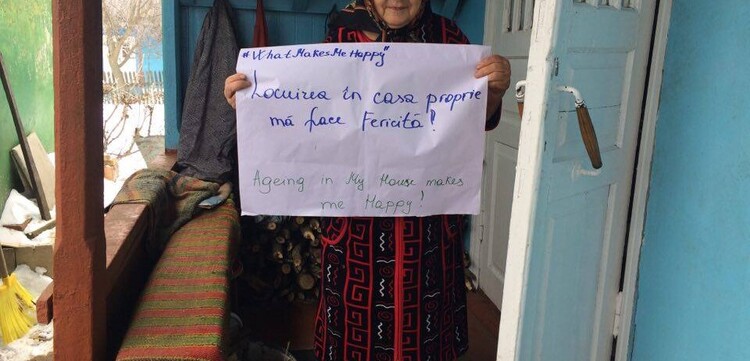 #WhatMakesMeHappy"
Locuirea în casa proprie
mă face Fericită!
Ageing in My House makes
me Happy!